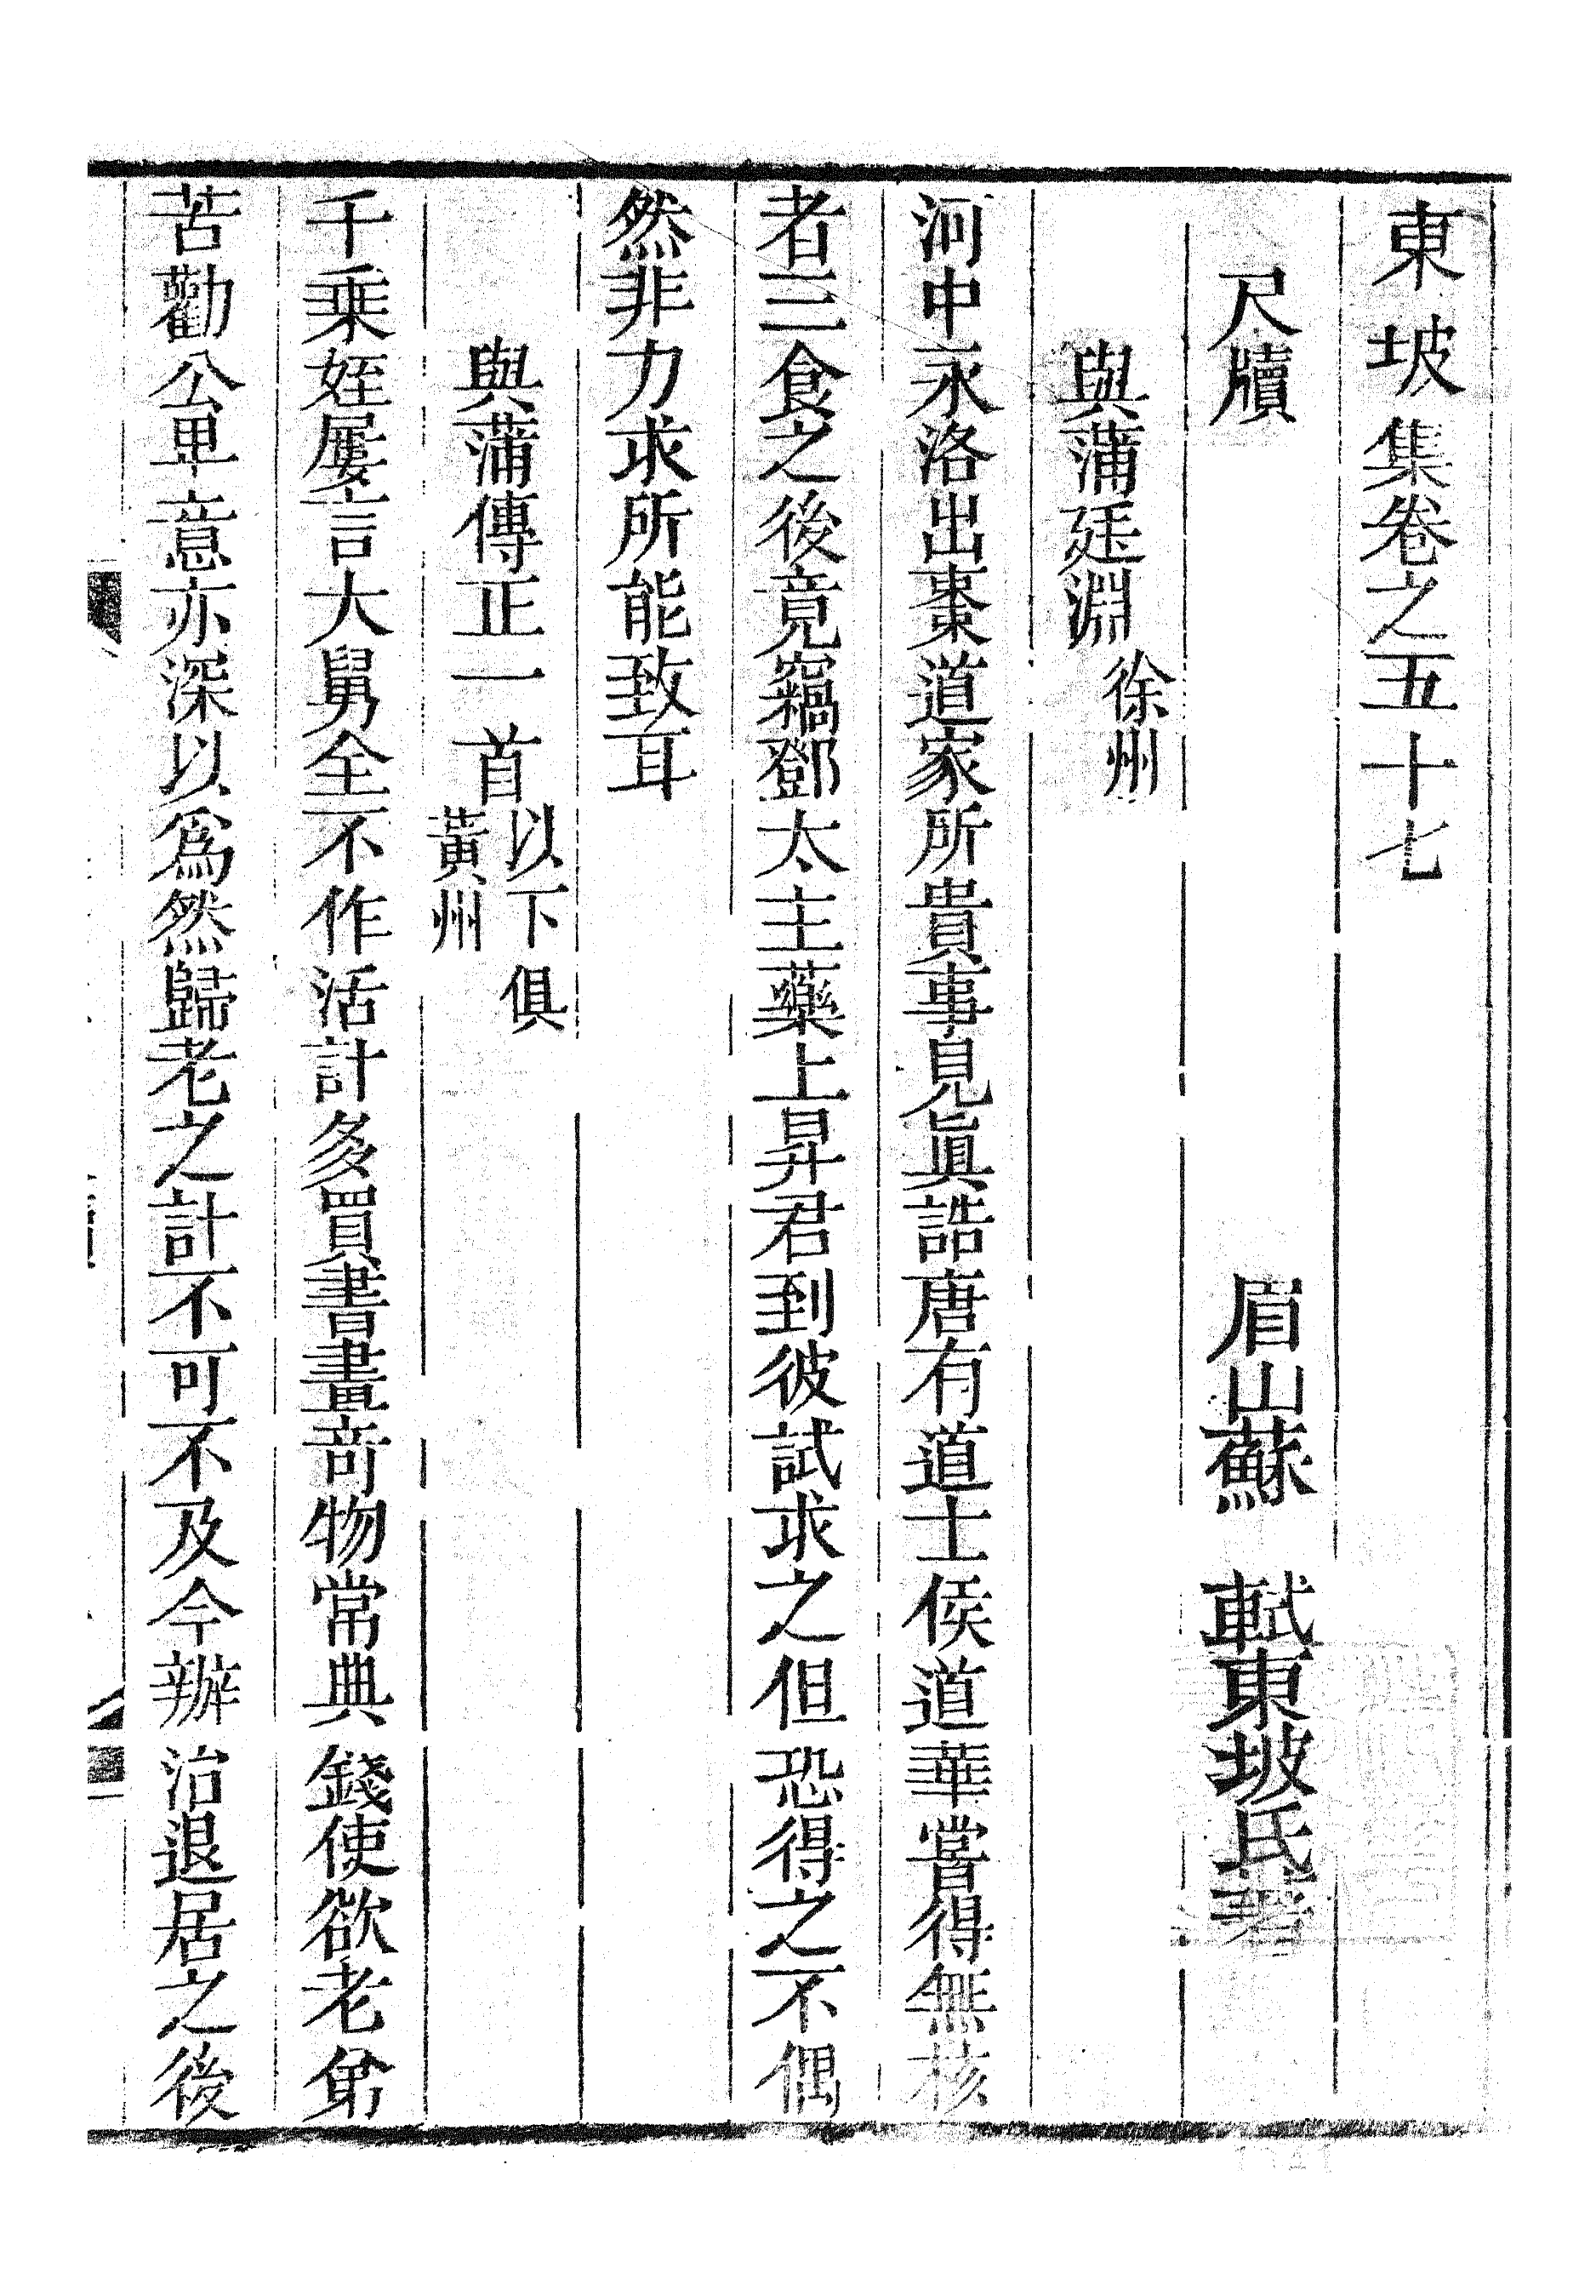 東坡集卷之五十七
尺牘　眉山蘇　軾東坡氏著
與蒲廷淵徐州
河中永洛出棗道家所貴事見眞誥唐有道士侯道華嘗得無核
者三食之後竟竊鄧太主藥上昇君到彼試求之但恐得之不偶
然非力求所能致耳
與蒲傳正一首以下俱黃州
千乘姪屢言大舅全不作活計多買書畫竒物常典錢使欲老弟
苦勸公卑意亦深以爲然歸老之計不可不及今辦治退居之後